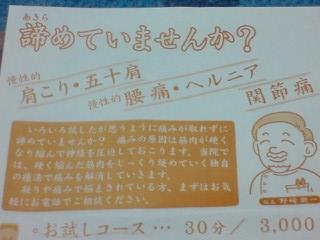 あきら
諦めていませんか?
慢性的
肩こり・五十肩
慢性的
腰痛・ヘルニア
関節痛
いろいろ試したが思うように痛みが取れずに
諦めていませんか? 痛みの原因は筋肉が硬く
なり縮んで神経を圧迫しておこります。当院で
は、硬く縮んだ筋肉をじっくり緩めていく独自
の療法で痛みを解消していきます。
凝りや痛みで悩まされている方、まずはお気
軽にお電話でご相談ください。
院長 野崎
お試しコース… 30分/3,000